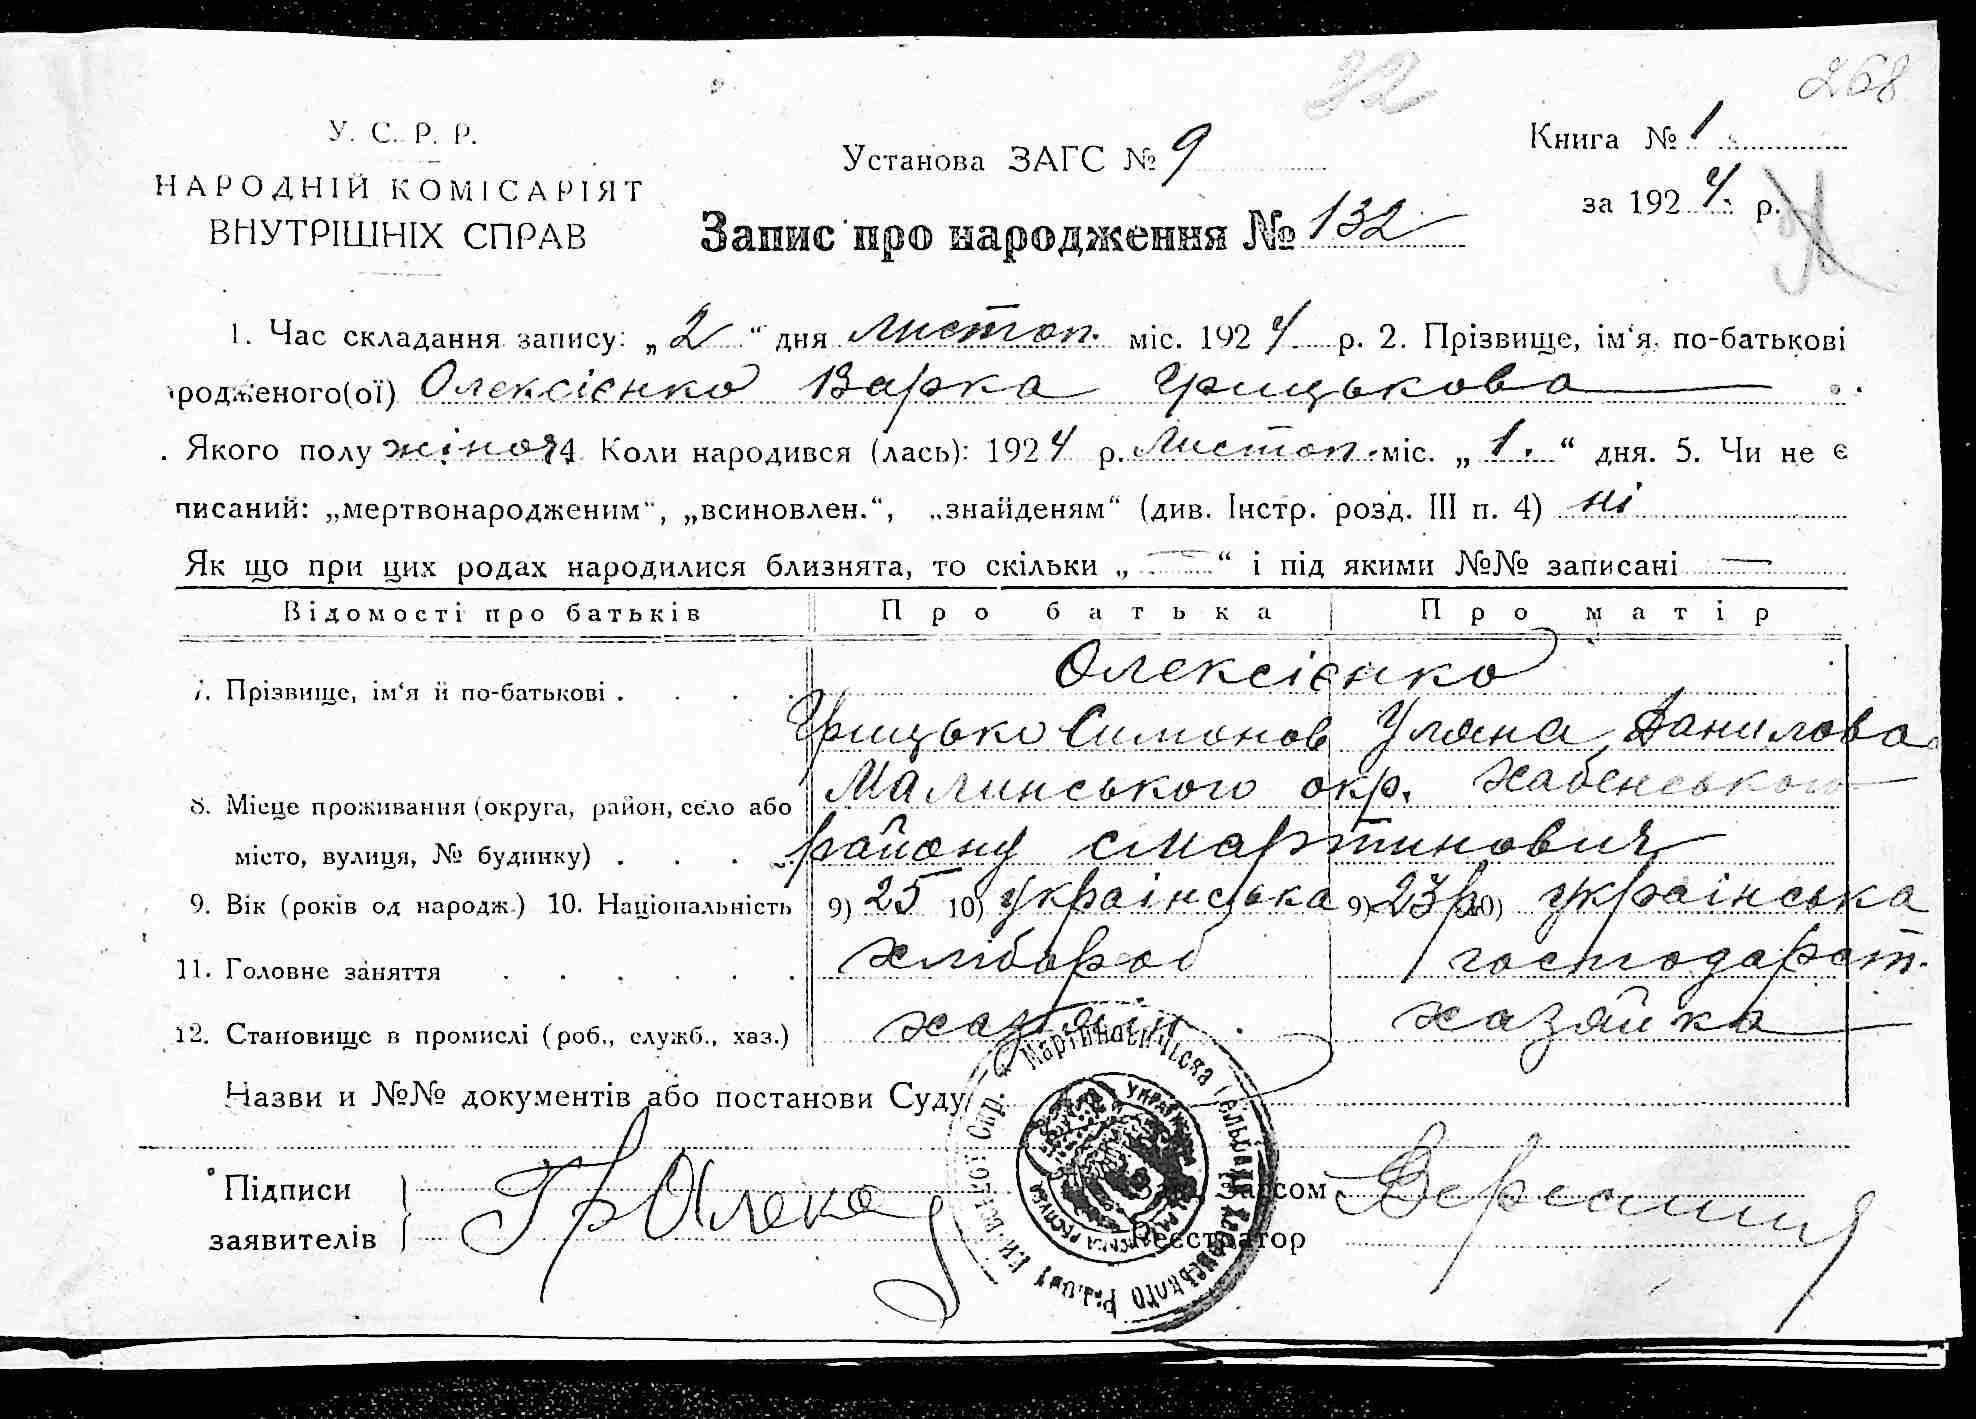 32
268
У. С. Р. Р.
НАРОДНІЙ КОМІСАРІЯТ
ВНУТРІШНІХ СПРАВ
Установа ЗАГС № 9
Книга № 1
за 1924 р.
Запис про народження № 132
1. Час складання запису: „2“ дня листоп. міс. 1924 р. 2. Прізвище, ім‘я, по-батькові
родженого(ої) Олексієнко Варка Грицькова
Якого полу жіноч 4. Коли народився (лась): 1924 р. листоп. міс. „1.“ дня. 5. Чи не є
писаний: „мертвонародженим“, „всиновлен.“, „знайденям“ (див. Інстр. розд. III п. 4) ні
Як що при цих родах народилися близнята, то скільки „—“ і під якими №№ записані —
Відомості про батьків Про батька Про матір
7. Прізвище, ім‘я й по-батькові . . . . Олексієнко
Грицько Симонов Уляна Данилова
8. Місце проживання (округа, район, село або Малинського окр. Хабенського
місто, вулиця, № будинку) . . . . району с Мартинович
9. Вік (років од народж.) 10. Національність 9) 25 10) українська 9) 23 р 10) українська
11. Головне заняття . . . . . . хлібороб господарст.
12. Становище в промислі (роб., служб., хаз.) хазяїн . хазяйка
Назви и №№ документів або постанови Суду
Підписи
заявителів
Гр Олекс
Загсом
Реєстратор